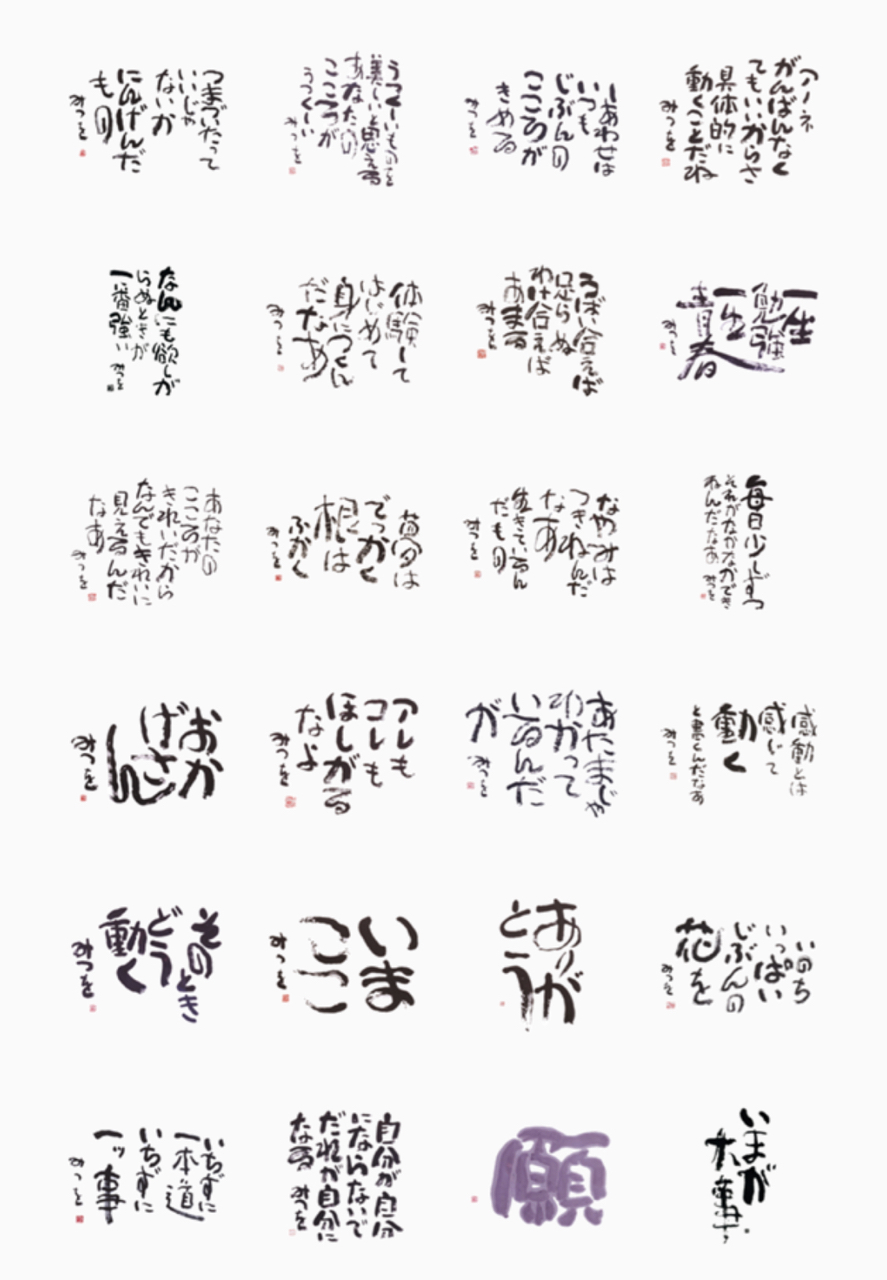 つまづいたって
いいじゃ
ないか
にんげんだ
もの
みつを
うつくしいものを
美しいと思える
あなたの
こころが
うつくしい
みつを
しあわせは
いつも
じぶんの
こころが
きめる
みつを
アノネ
がんばんなく
てもいいからさ
具体的に
動くことだね
みつを
なんにも欲しが
らぬときが
一番強い
みつを
体験して
はじめて
身につくん
だなあ
みつを
うばい合えば
足らぬ
わけ合えば
あまる
みつを
一生
勉強
一生
青春
みつを
あなたの
こころが
きれいだから
なんでもきれいに
見えるんだ
なあ
みつを
夢は
でっかく
根は
ふかく
みつを
なやみは
つきねんだ
なあ
生きているん
だもの
みつを
毎日少しずつ
それがなかなかでき
ねんだなあ
みつを
おか
げさ
ん
みつを
アレも
コレも
ほしがる
なよ
みつを
あたまじゃ
わかって
いるんだ
が
みつを
感動とは
感じて
動く
と書くんだなあ
みつを
そのとき
どう
動く
みつを
いま
ここ
みつを
ありが
とう
いのち
いっぱい
じぶんの
花を
みつを
いちずに
一本道
いちずに
一ッ事
みつを
自分が自分
にならないで
だれが自分に
なる
みつを
願
いまが
大事.